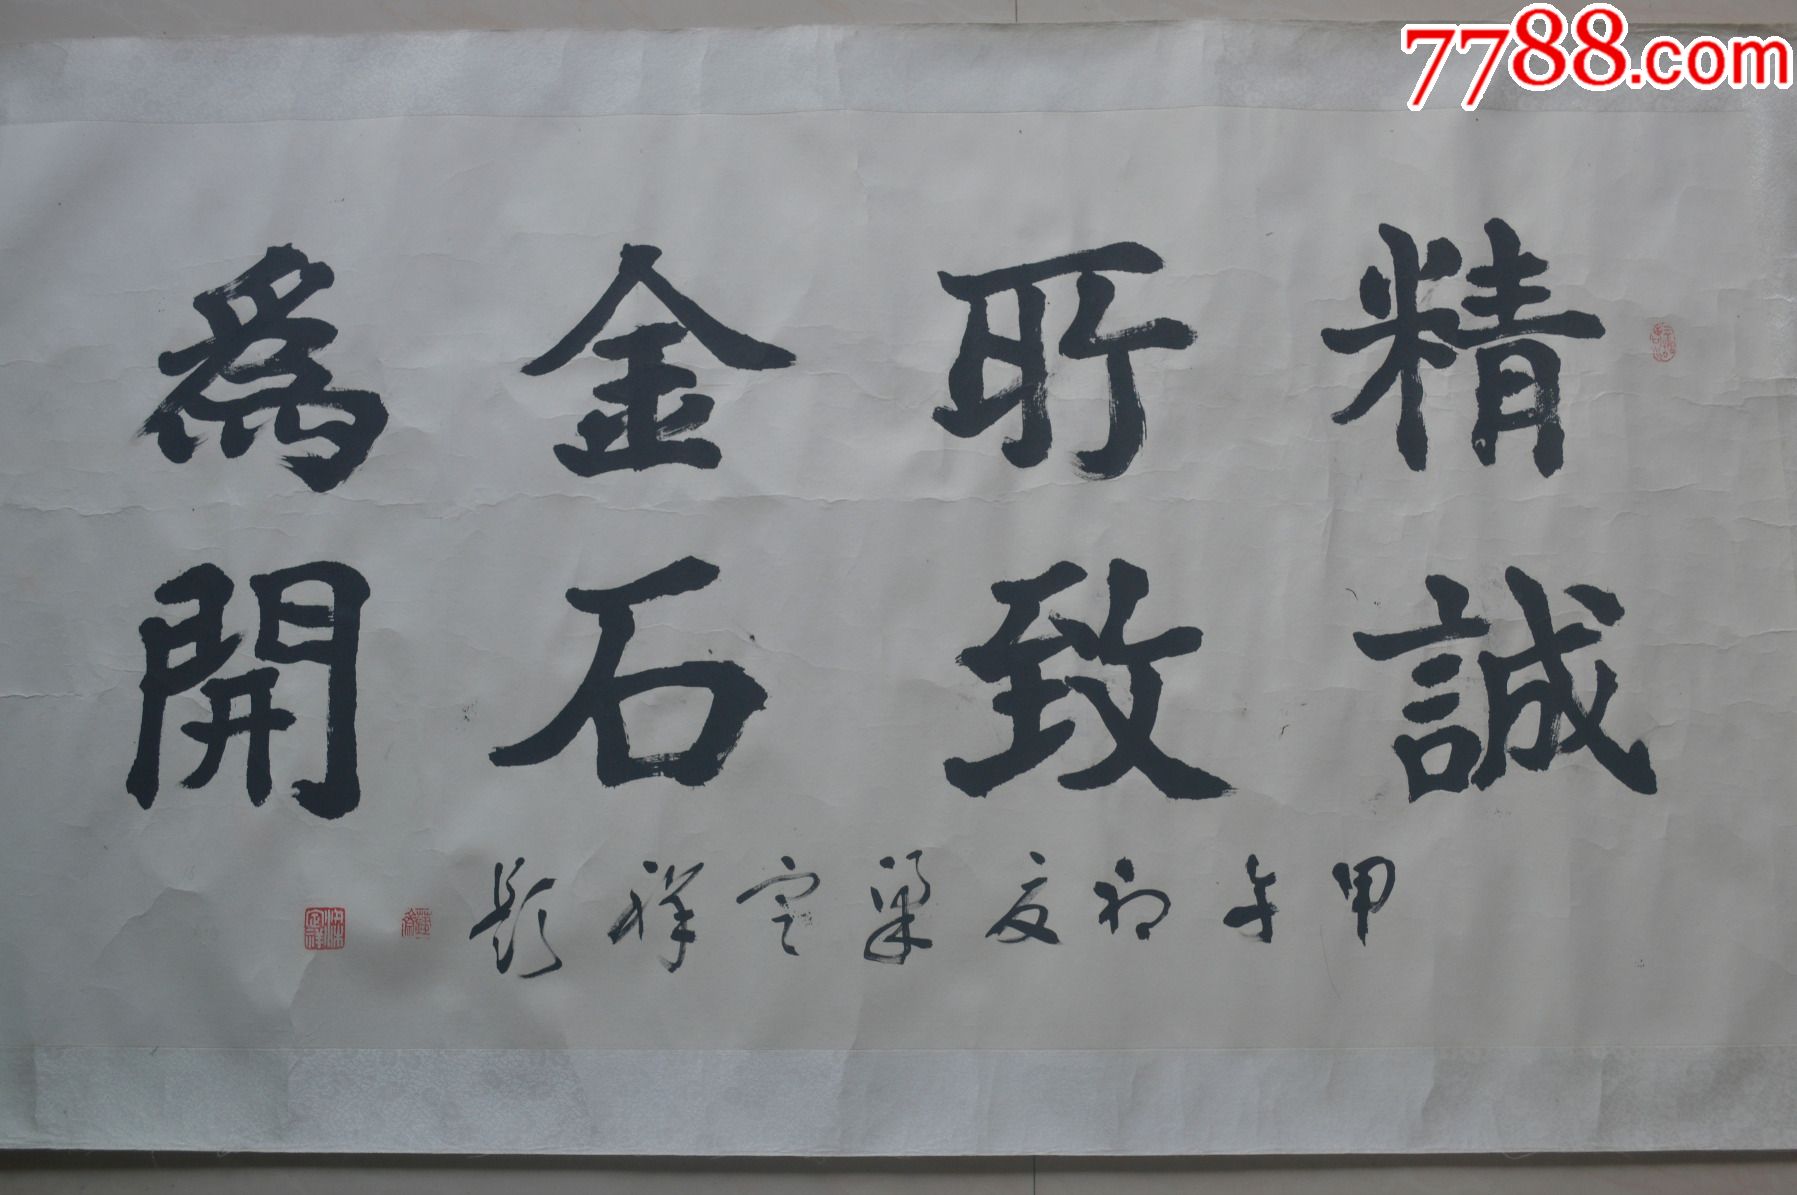 7788.com
精誠
所致
金石
為開
甲午初夏梁定祥題